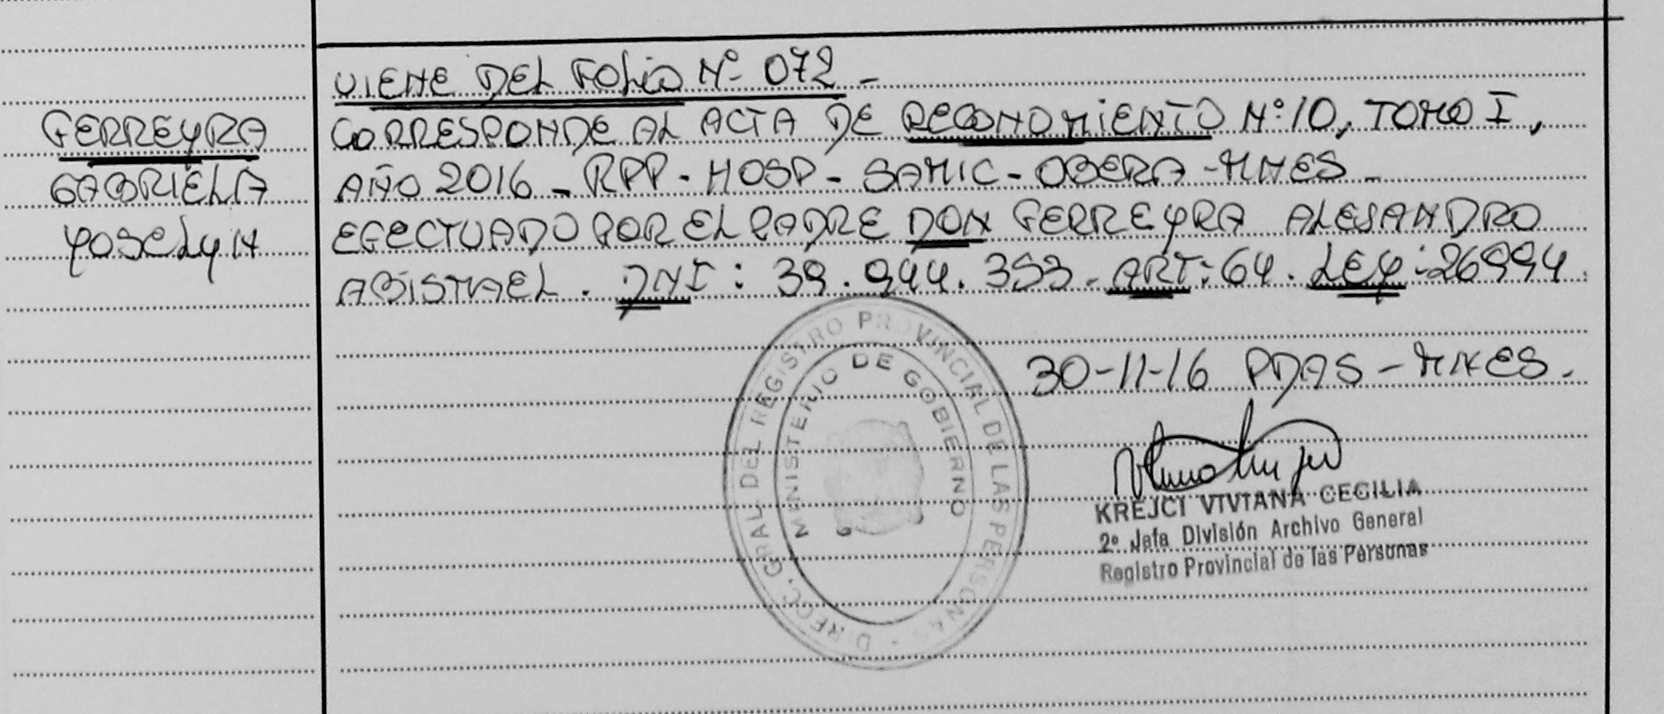 FERREYRA
GABRIELA
YOSELYN
VIENE DEL FOLIO Nº 072 -
CORRESPONDE AL ACTA DE RECONOMIENTO Nº 10, TOMO I,
AÑO 2016 - RPP - HOSP - SAMIC - OBERA - MNES -
EFECTUADO POR EL PADRE DON FERREYRA ALESANDRO
ABISMAEL. DNI: 39.944.353 - ART: 64. LEY: 26994.
30-11-16 PDAS - MNES.
DIRECC. GRAL DEL REGISTRO PROVINCIAL DE LAS PERSONAS
MINISTERIO DE GOBIERNO
KREJCI VIVIANA CECILIA
2º Jefa División Archivo General
Registro Provincial de las Personas